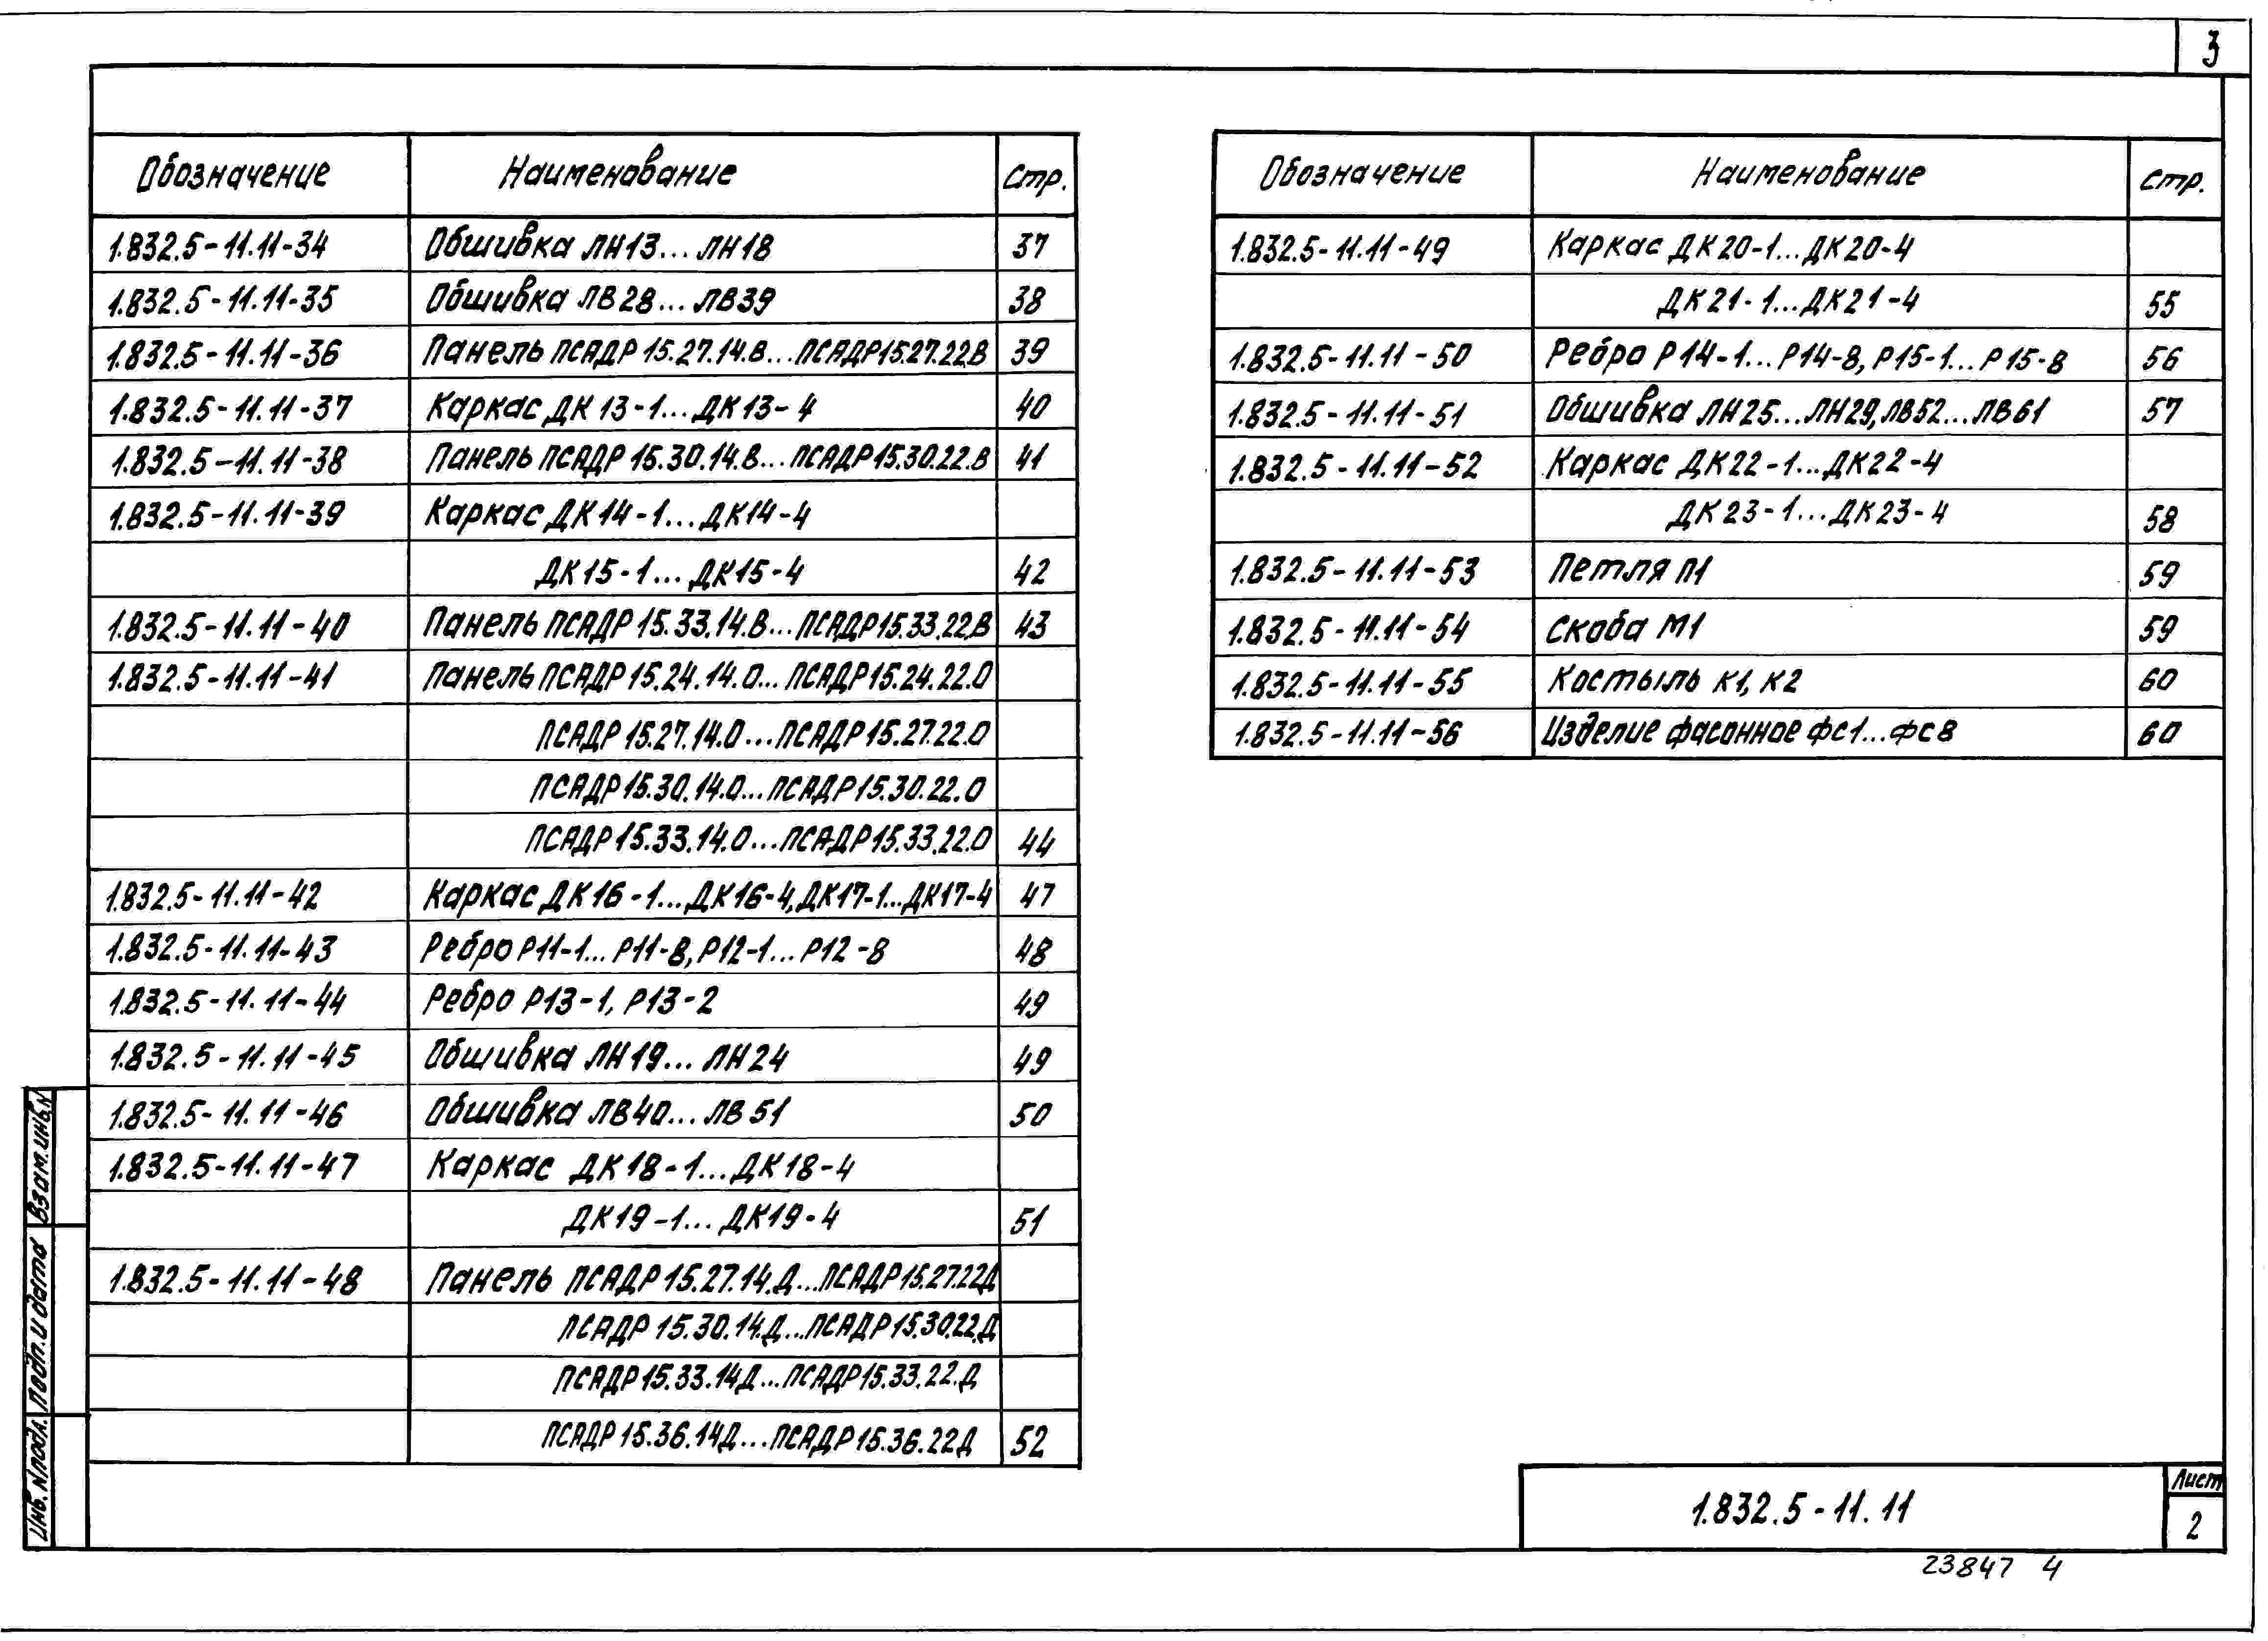 3
Обозначение Наименование Стр.
1.832.5-11.11-34 Обшивка ЛН13...ЛН18 37
1.832.5-11.11-35 Обшивка ЛВ28...ЛВ39 38
1.832.5-11.11-36 Панель ПСАДР 15.27.14.В...ПСАДР15.27.22.В 39
1.832.5-11.11-37 Каркас ДК 13-1...ДК13-4 40
1.832.5-11.11-38 Панель ПСАДР 15.30.14.В...ПСАДР15.30.22.В 41
1.832.5-11.11-39 Каркас ДК14-1...ДК14-4
ДК15-1...ДК15-4 42
1.832.5-11.11-40 Панель ПСАДР 15.33.14.В...ПСАДР15.33.22.В 43
1.832.5-11.11-41 Панель ПСАДР15.24.14.О...ПСАДР15.24.22.О
ПСАДР15.27.14.О...ПСАДР15.27.22.О
ПСАДР15.30.14.О...ПСАДР15.30.22.О
ПСАДР15.33.14.О...ПСАДР15.33.22.О 44
1.832.5-11.11-42 Каркас ДК16-1...ДК16-4, ДК17-1...ДК17-4 47
1.832.5-11.11-43 Ребро Р11-1...Р11-8, Р12-1...Р12-8 48
1.832.5-11.11-44 Ребро Р13-1, Р13-2 49
1.832.5-11.11-45 Обшивка ЛН19...ЛН24 49
1.832.5-11.11-46 Обшивка ЛВ40...ЛВ51 50
1.832.5-11.11-47 Каркас ДК18-1...ДК18-4
ДК19-1...ДК19-4 51
1.832.5-11.11-48 Панель ПСАДР15.27.14.Д...ПСАДР15.27.22Д
ПСАДР 15.30.14.Д...ПСАДР15.30.22.Д
ПСАДР15.33.14Д...ПСАДР15.33.22.Д
ПСАДР15.36.14Д...ПСАДР15.36.22Д 52
Обозначение Наименование Стр.
1.832.5-11.11-49 Каркас ДК20-1...ДК20-4
ДК21-1...ДК21-4 55
1.832.5-11.11-50 Ребро Р14-1...Р14-8, Р15-1...Р15-8 56
1.832.5-11.11-51 Обшивка ЛН25...ЛН29, ЛВ52...ЛВ61 57
1.832.5-11.11-52 Каркас ДК22-1...ДК22-4
ДК23-1...ДК23-4 58
1.832.5-11.11-53 Петля П1 59
1.832.5-11.11-54 Скоба М1 59
1.832.5-11.11-55 Костыль К1, К2 60
1.832.5-11.11-56 Изделие фасонное ФС1...ФС8 60
Взам.инв.N
Подп. и дата
Инв. N подл.
1.832.5-11.11
Лист
2
23847 4